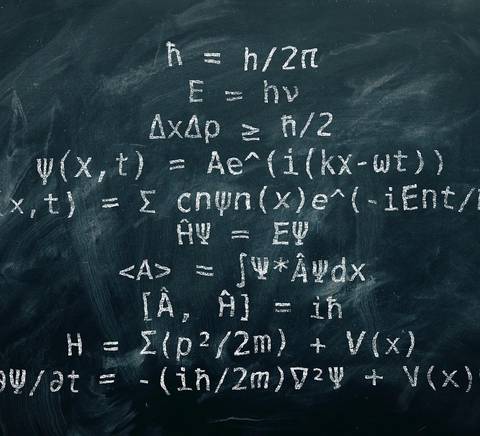 ħ = h/2π
E = hν
ΔxΔp ≥ ħ/2
ψ(x,t) = Ae^(i(kx-ωt))
(x,t) = Σ cnψn(x)e^(-iEnt/
ĤΨ = EΨ
<A> = ∫Ψ*ÂΨdx
[Â, Ĥ] = iħ
H = Σ(p²/2m) + V(x)
∂Ψ/∂t = -(iħ/2m)∇²Ψ + V(x)